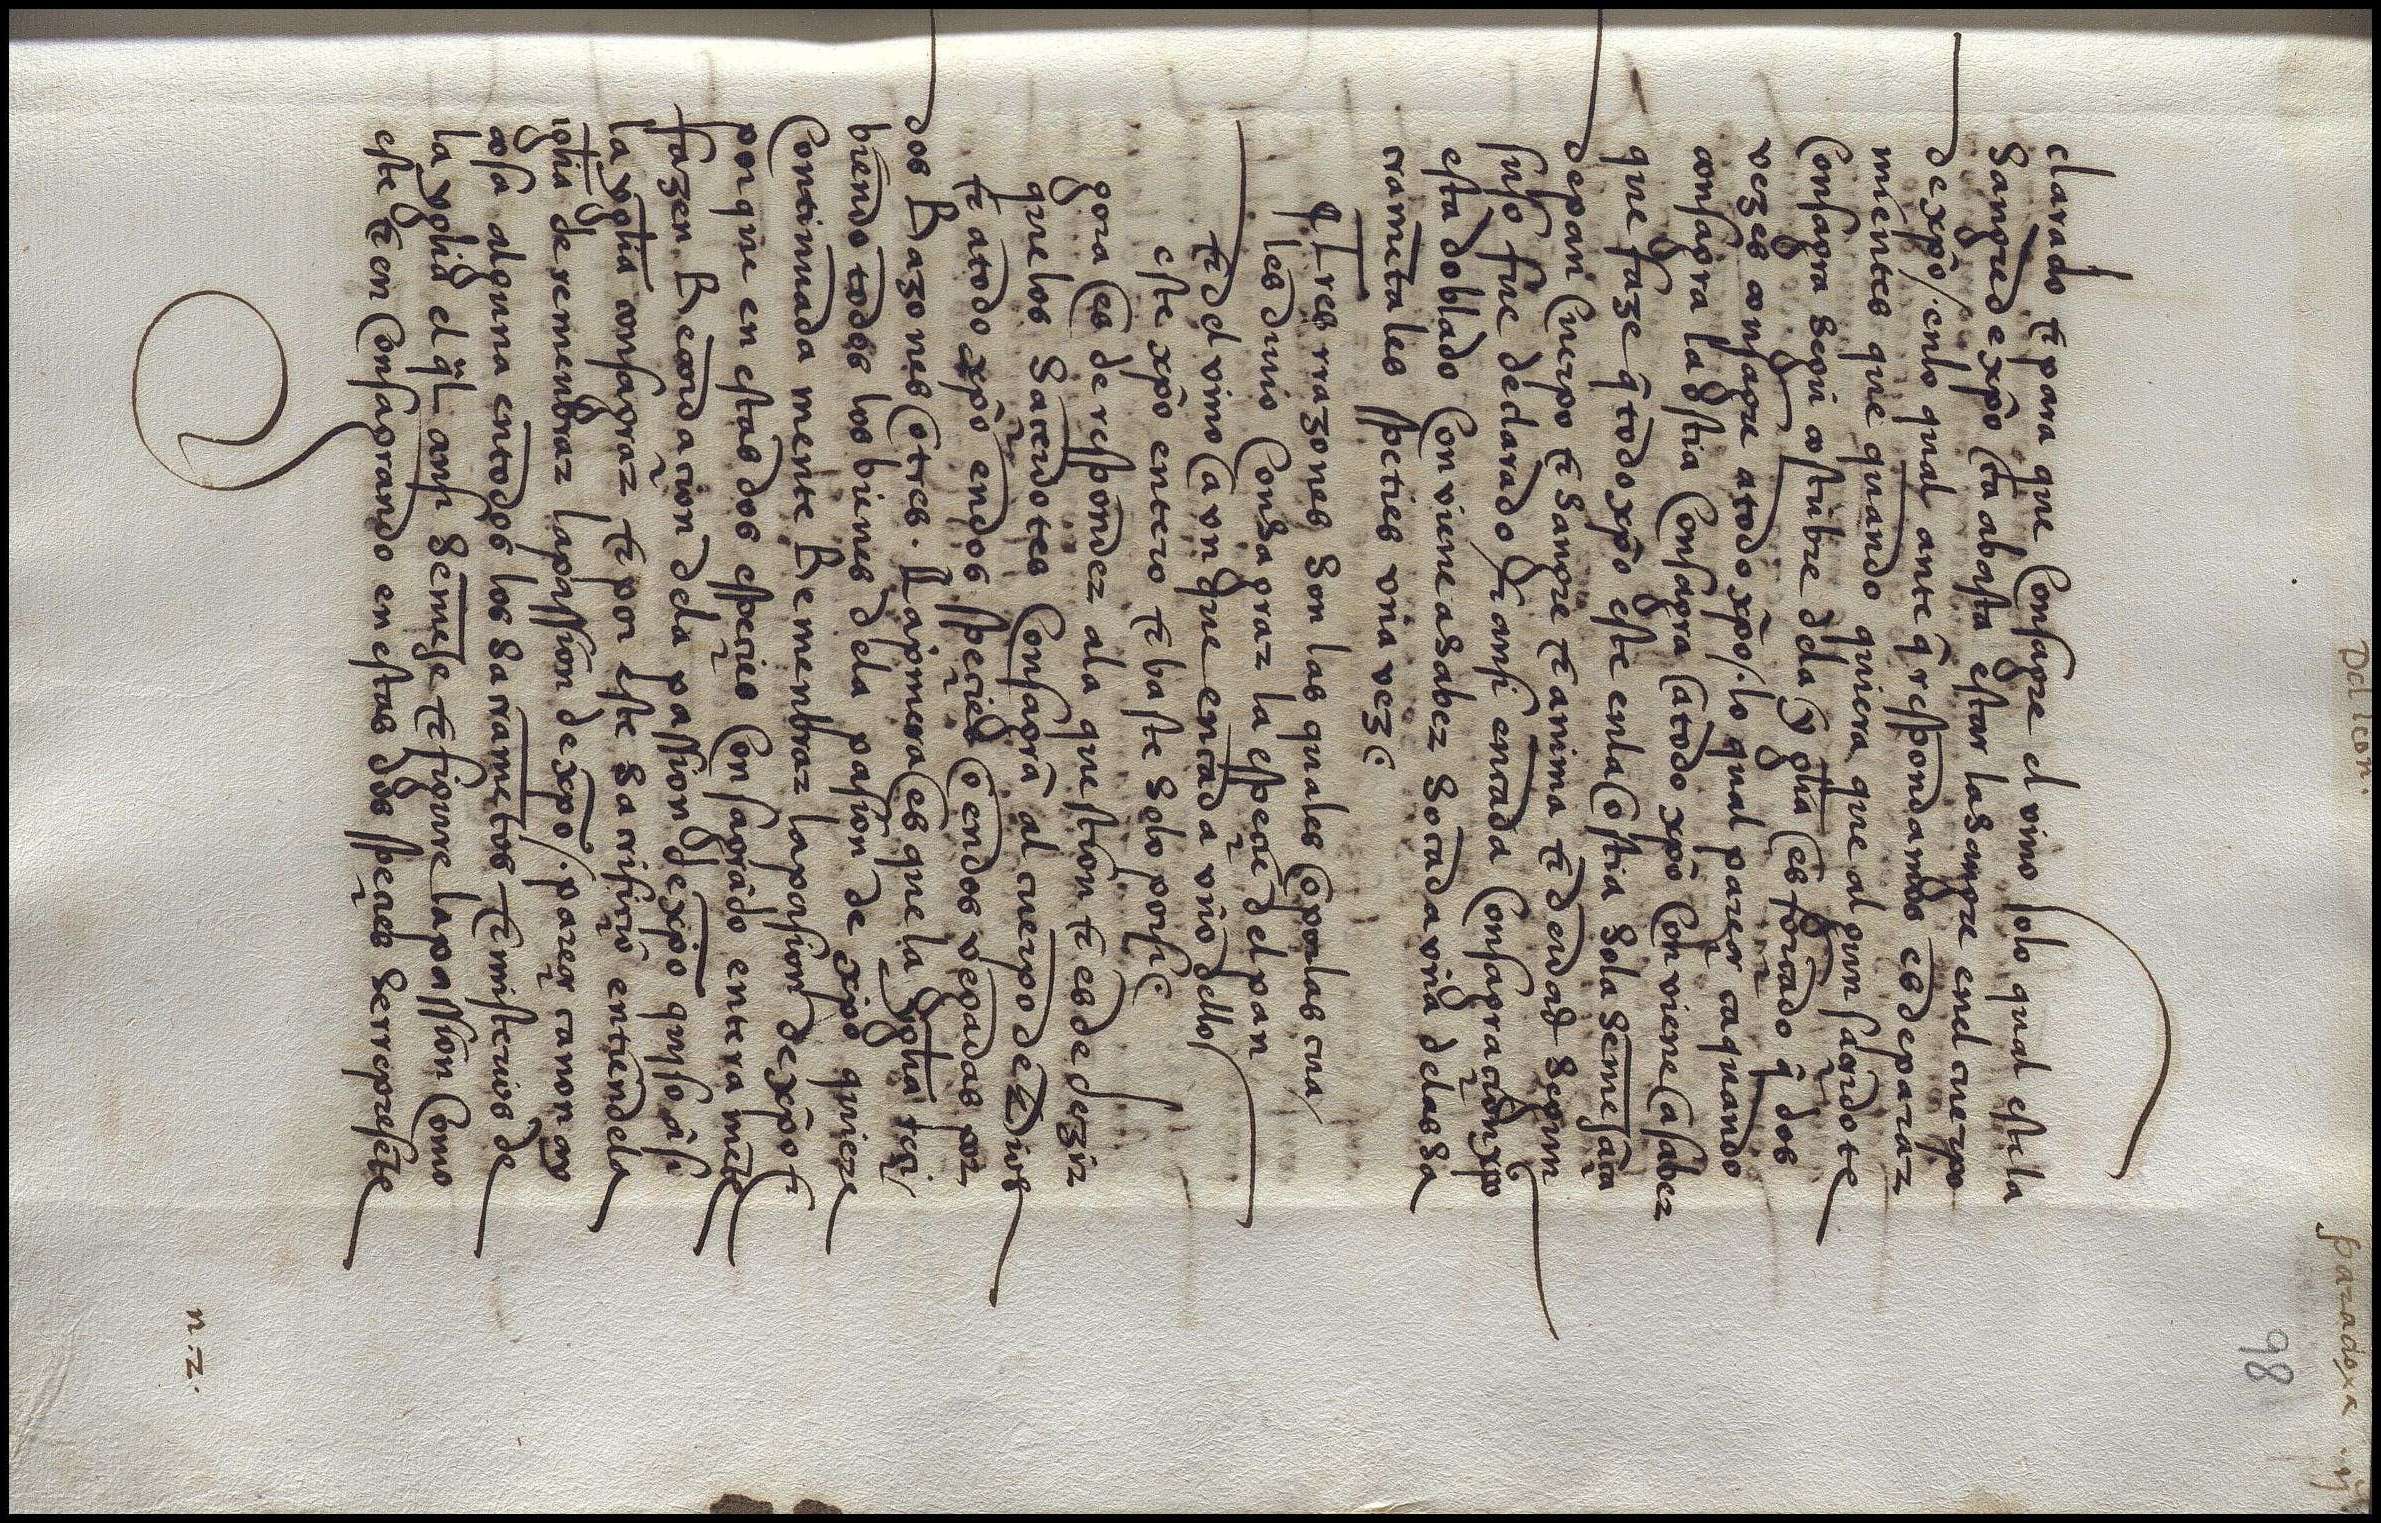 Del leon.
paradoxa iij
98
clarado τ para que consagre el vino solo qual est la
sangre de xp̄o ca abasta estar la sangre en el cuerpo
de xp̄o /. en lo qual ante q̄ respondamos es de parar
mientes que quando quiera que algun sac̃dote
consagra segũ costũbre dela ygl̄ia es forc̃ado q̄ dos
vezes consagre a todo xp̄o /. lo qual parec̃e ca quando
consagra la ostia consagra a todo xp̄o conviene a saber
que faze q̄ todo xp̄o este en la ostia sola semejãça
de pan cuerpo τ sangre τ anima τ deidad segun
suso fue declarado y ansi en cada consagrac̃ion xp̄o
esta doblado conviene a saber so cada vna delas sa
cramētales species vna vez
¶ Tres rrazones son las quales por las cua
les deuio consagrar la especie del pan
τ del vino a vn que en cada vno dello
este xp̄o entero τ baste solo por si
gora es de responder ala question τ es de dezir
que los sac̃dotes consagrã al cuerpo de dios
τ a todo xp̄o en dos species o en dos vegadas por
dos Razones o tres. La primera es que la ygl̄ia res̃i
biendo todos los bienes dela pasion de xp̄o quiere
continuada mente Remenbrar la pasion de xp̄o τ
porque en estas dos especies consagrãdo entera mẽte
fazen Recordac̃ion dela passion de xp̄o quiso asi
la ygl̄ia consagrar τ por este sacrific̃io entiende la
igl̄ia de remenbrar la passion de xp̄o /. parec̃e ca non ay
cosa alguna en todos los sacramētos τ misterios de
la ygl̄ia el q̄l ansi semeje τ figure la passion como
este τ en consagrando en estas dos spec̃ies se rrepresēte
n.2.